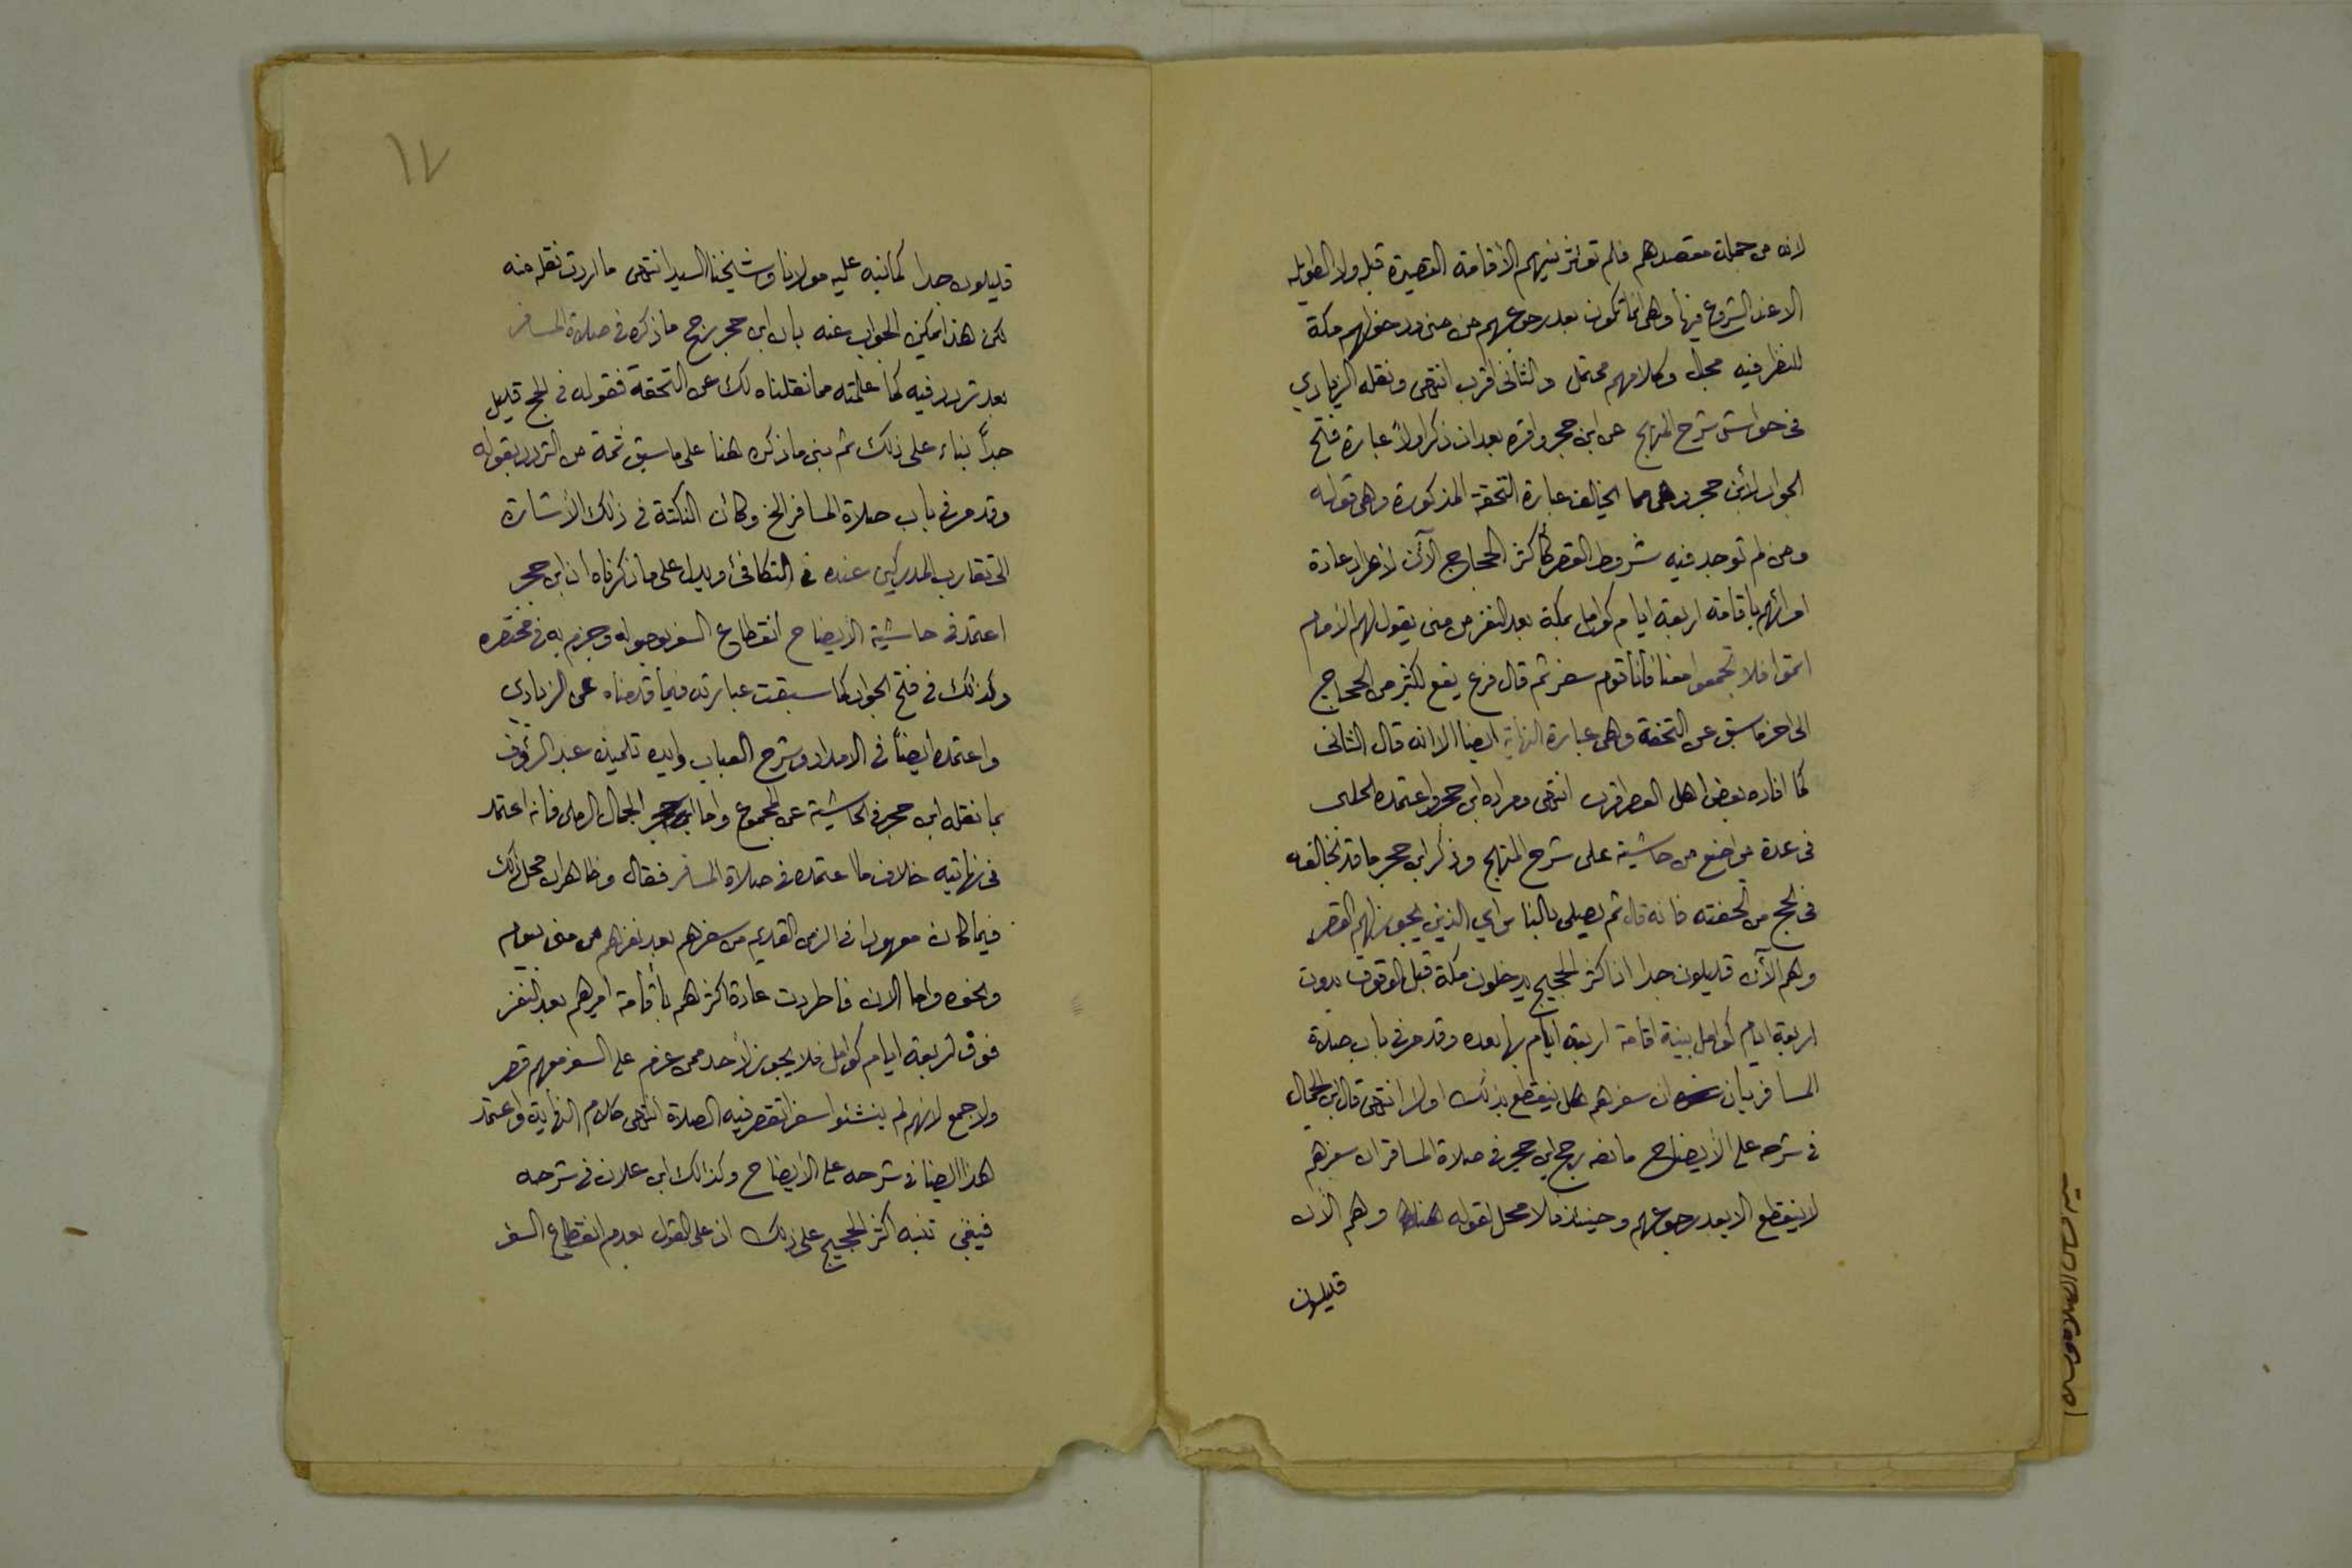 لانه من جملة مقصدهم فلم تؤثر نيتهم الأقامة القصيرة قبله ولا الطويله
الا عند الشروع فيها وهى انما تكون بعد رجوعهم من منى ودخولهم مكة
للنظر فيه مجال وكلامهم محتمل والثانى اقرب انتهى ونقله الزيادي
فى حواشى شرح المنهج عن ابن حجر واقره بعد ان ذكر اولاً عبارة فتح
الجواد لأبن حجر وهى مما يخالف عبارة التحفة المذكورة وهى قوله
ومن لم توجد فيه شروط القصر كأكثر الحجاج الآن لأطراد عادة
امرائهم باقامة اربعة ايام كوامل بمكة بعد النفر من منى يقول لهم الأمام
اتموا فلا تجمعوا معنا فأنا قوم سفر ثم قال فرع يقع لكثير من الحجاج
الى اخر ما سبق عن التحفة وهى عبارة النهاية ايضا الا انه قال الثانى
كما افاده بعض اهل العصر اقرب انتهى ومراده ابن حجر واعتمده الحلبى
فى عدة مواضع من حاشيته على شرح المنهج وذكر ابن حجر ما قد يخالفه
فى الحج من تحفته فانه قال ثم يصلى بالناس اي الذين يجوز لهم القصر
وهم الآن قليلون جدا اذ اكثر الحجيج يدخلون مكة قبل الوقوف بدون
اربعة ايام كوامل بنية اقامة اربعة ايام بها بعده وقد مر فى باب صلاة
المسافر بيان ان سفرهم هل ينقطع بذلك اولا انتهى قال ابن الجمال
فى شرحه على الأيضاح ما نصه رجح ابن حجر فى صلاة المسافر ان سفرهم
لا ينقطع الا بعد رجوعهم وحينئذ فلا محل لقوله هنا وهم الآن
قليلون
١٧
قليلون جدا كما نبه عليه مولانا وشيخنا السيد انتهى ما اردت نقله منه
لكن هذا يمكن الجواب عنه بان ابن حجر رجح ما ذكره فى صلاة المسافر
بعد تردد فيه كما علمته مما نقلناه لك عن التحفة فقوله فى الحج قليل
جداً بناء على ذلك ثم بنى ما ذكره هنا على ما سبق ثمة من التردد بقوله
وقد مر فى باب صلاة المسافر الخ وكأن النكتة فى ذلك الأشارة
الى تقارب المدركين عنده فى التكافئ ويدل على ما ذكرناه ان ابن حجر
اعتمد فى حاشية الأيضاح انقطاع السفر بوصوله وجزم به فى مختصره
وكذلك فى فتح الجواد كما سبقت عبارته فيما قدمناه عن الزيادي
واعتمده ايضاً فى الامداد وشرح العباب وايده تلميذه عبد الرؤف
بما نقله ابن حجر فى الحاشية عن المجموع واما الجمال الرملى فانه اعتمد
فى نهايته خلاف ما اعتمده فى صلاة المسافر فقال وظاهر ان محل ذلك
فيما كان معهودا فى الزمن القديم من سفرهم بعد نفرهم من منى بيوم
ونحوه واما الان فاطردت عادة اكثرهم بأقامة اميرهم بعد النفر
فوق اربعة ايام كوامل فلا يجوز لأحد ممن عزم على السفر معهم قصر
ولا جمع لانهم لم ينشئوا سفرا تقصر فيه الصلاة انتهى كلام النهاية واعتمد
هذا ايضا فى شرحه على الأيضاح وكذلك ابن علان فى شرحه
فينبغى تنبه اكثر الحجيج على ذلك اذ على القول بعدم انقطاع السفر